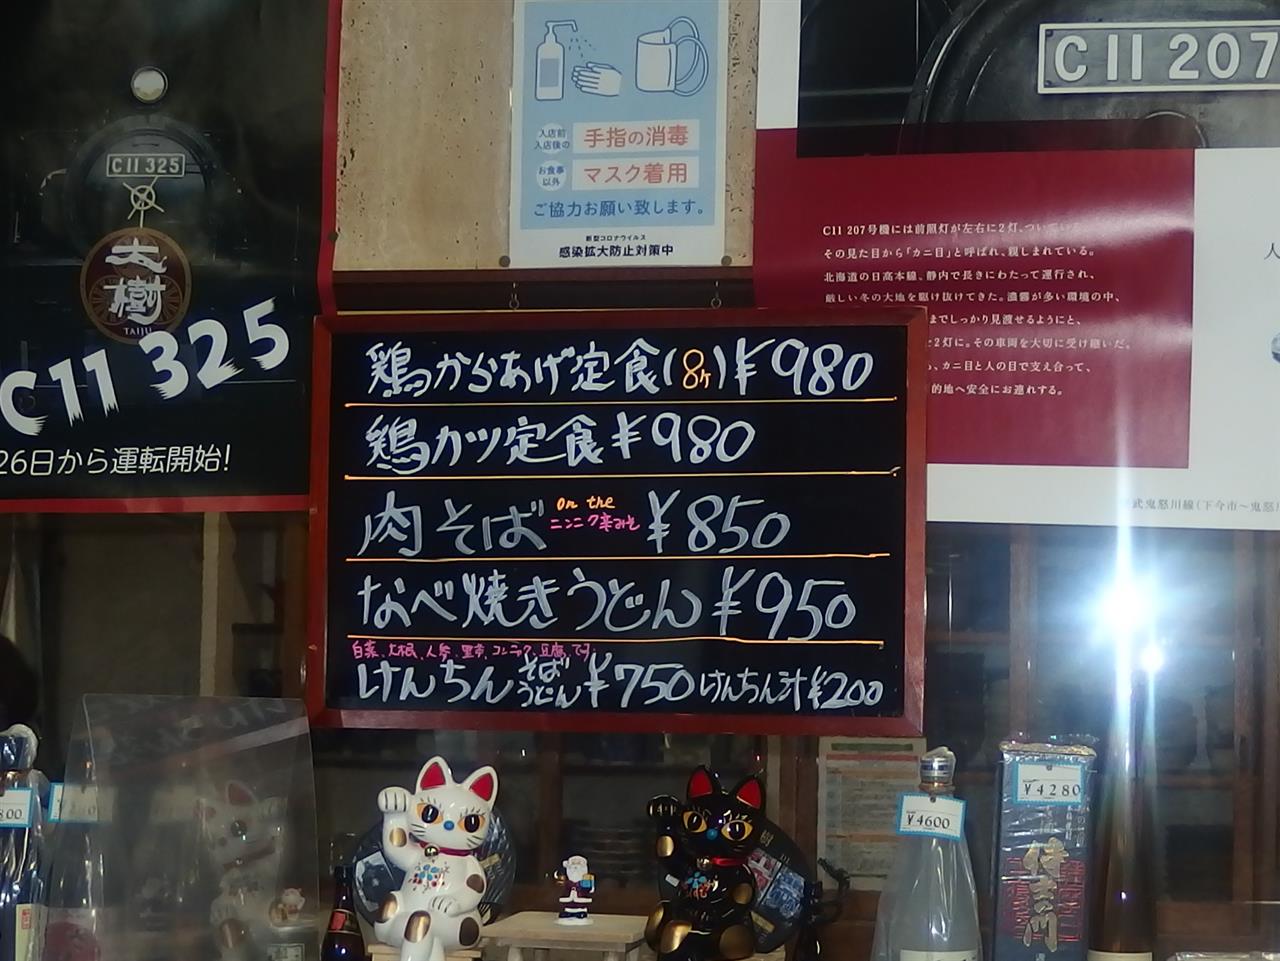 C11 325
大樹
TAIJU
C11 325
26日から運転開始!
入店前
入店後の
手指の消毒
お食事
以外
マスク着用
ご協力お願い致します。
新型コロナウイルス
感染拡大防止対策中
C11 207
C11 207号機には前照灯が左右に2灯、ついている。
その見た目から「カニ目」と呼ばれ、親しまれている。
北海道の日高本線、静内で長きにわたって運行され、
厳しい冬の大地を駆け抜けてきた。濃霧が多い環境の中、
までしっかり見渡せるようにと、
2灯に。その車両を大切に受け継いだ。
、カニ目と人の目で支え合って、
的地へ安全にお連れする。
人
武鬼怒川線(下今市〜鬼怒川
鶏からあげ定食(8ヶ)¥980
鶏カツ定食¥980
肉そば on the ニンニク辛みそ ¥850
なべ焼きうどん¥950
白菜、大根、人参、里芋、コンニャク、豆腐、です
けんちん そば うどん ¥750 けんちん汁¥200
800
¥4600
¥4280